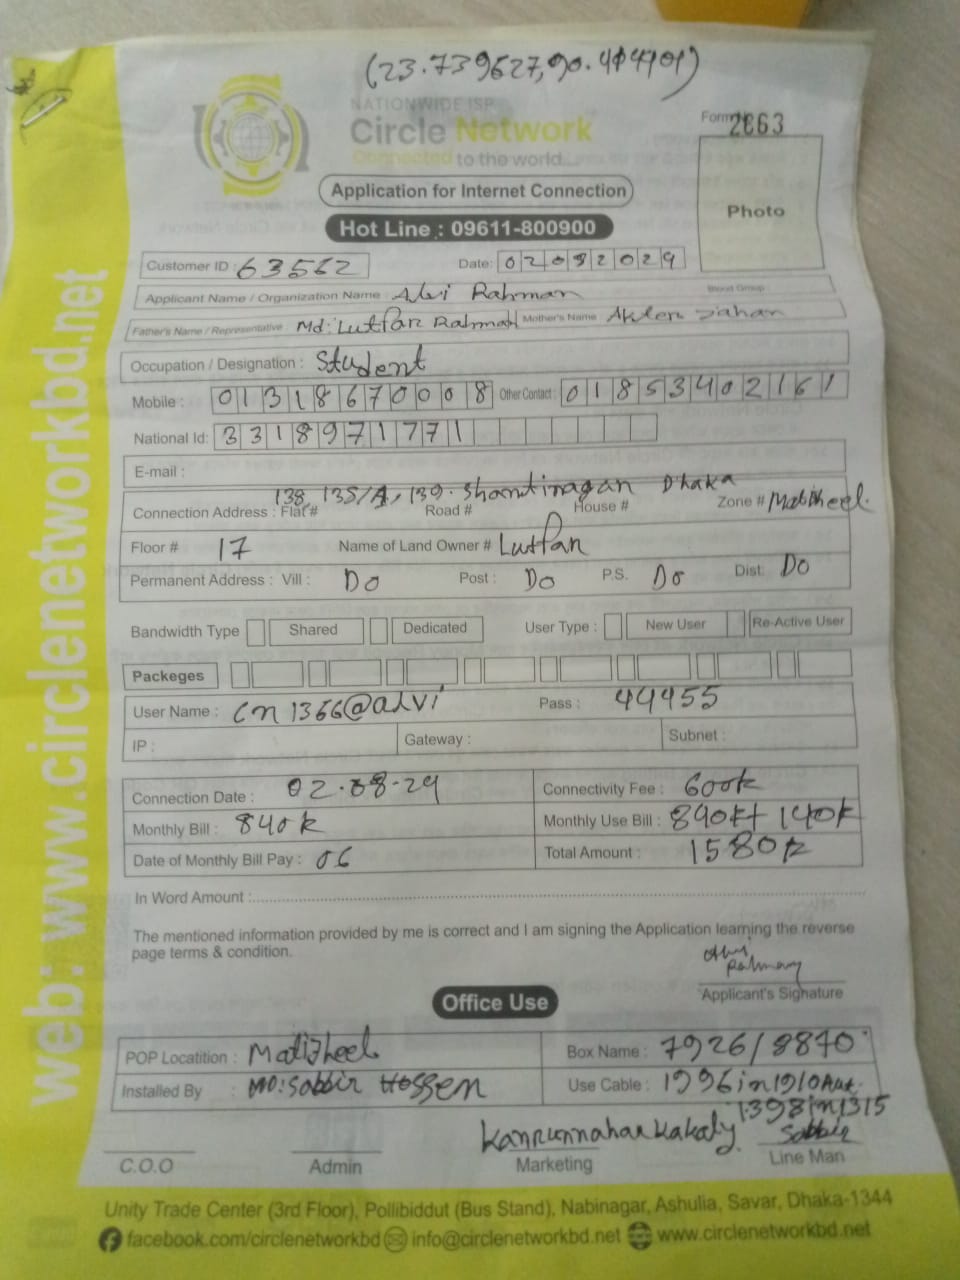 (23.739627,90.414101)
NATIONWIDE ISP
Circle Network
Connected to the world
Form 2863
Photo
Application for Internet Connection
Hot Line : 09611-800900
Customer ID : 63562 Date: 02082029
Applicant Name / Organization Name : Alvi Rahman Blood Group
Father's Name / Representative : Md: Lutfar Rahman Mother's Name : Akter Jahan
Occupation / Designation : Student
Mobile : 01318670008 Other Contact : 01853402161
National Id: 3318971771
E-mail :
138, 135/A, 139. Shantinagar Dhaka
Connection Address : Flat # Road # House # Zone # Matijheel.
Floor # 17 Name of Land Owner # Lutfar
Permanent Address : Vill : Do Post : Do P.S. Do Dist: Do
Bandwidth Type Shared Dedicated User Type : New User Re-Active User
Packeges
User Name : cn1366@alvi Pass : 44455
IP : Gateway : Subnet :
Connection Date : 02-08-24 Connectivity Fee : 600k
Monthly Bill : 840k Monthly Use Bill : 840k+ 140k
Date of Monthly Bill Pay : 06 Total Amount : 1580k
In Word Amount :
The mentioned information provided by me is correct and I am signing the Application learning the reverse
page terms & condition.
Alvi
Rahman
Applicant's Signature
Office Use
POP Locatition : Matijheel Box Name : 7926/8870
Installed By : MD: Sabbir Hossen Use Cable : 1996in1910Aut.
1398in1315
Kanrunnahar Kakaly Sabbir
C.O.O Admin Marketing Line Man
Unity Trade Center (3rd Floor), Pollibiddut (Bus Stand), Nabinagar, Ashulia, Savar, Dhaka-1344
facebook.com/circlenetworkbd info@circlenetworkbd.net www.circlenetworkbd.net
web: www.circlenetworkbd.net